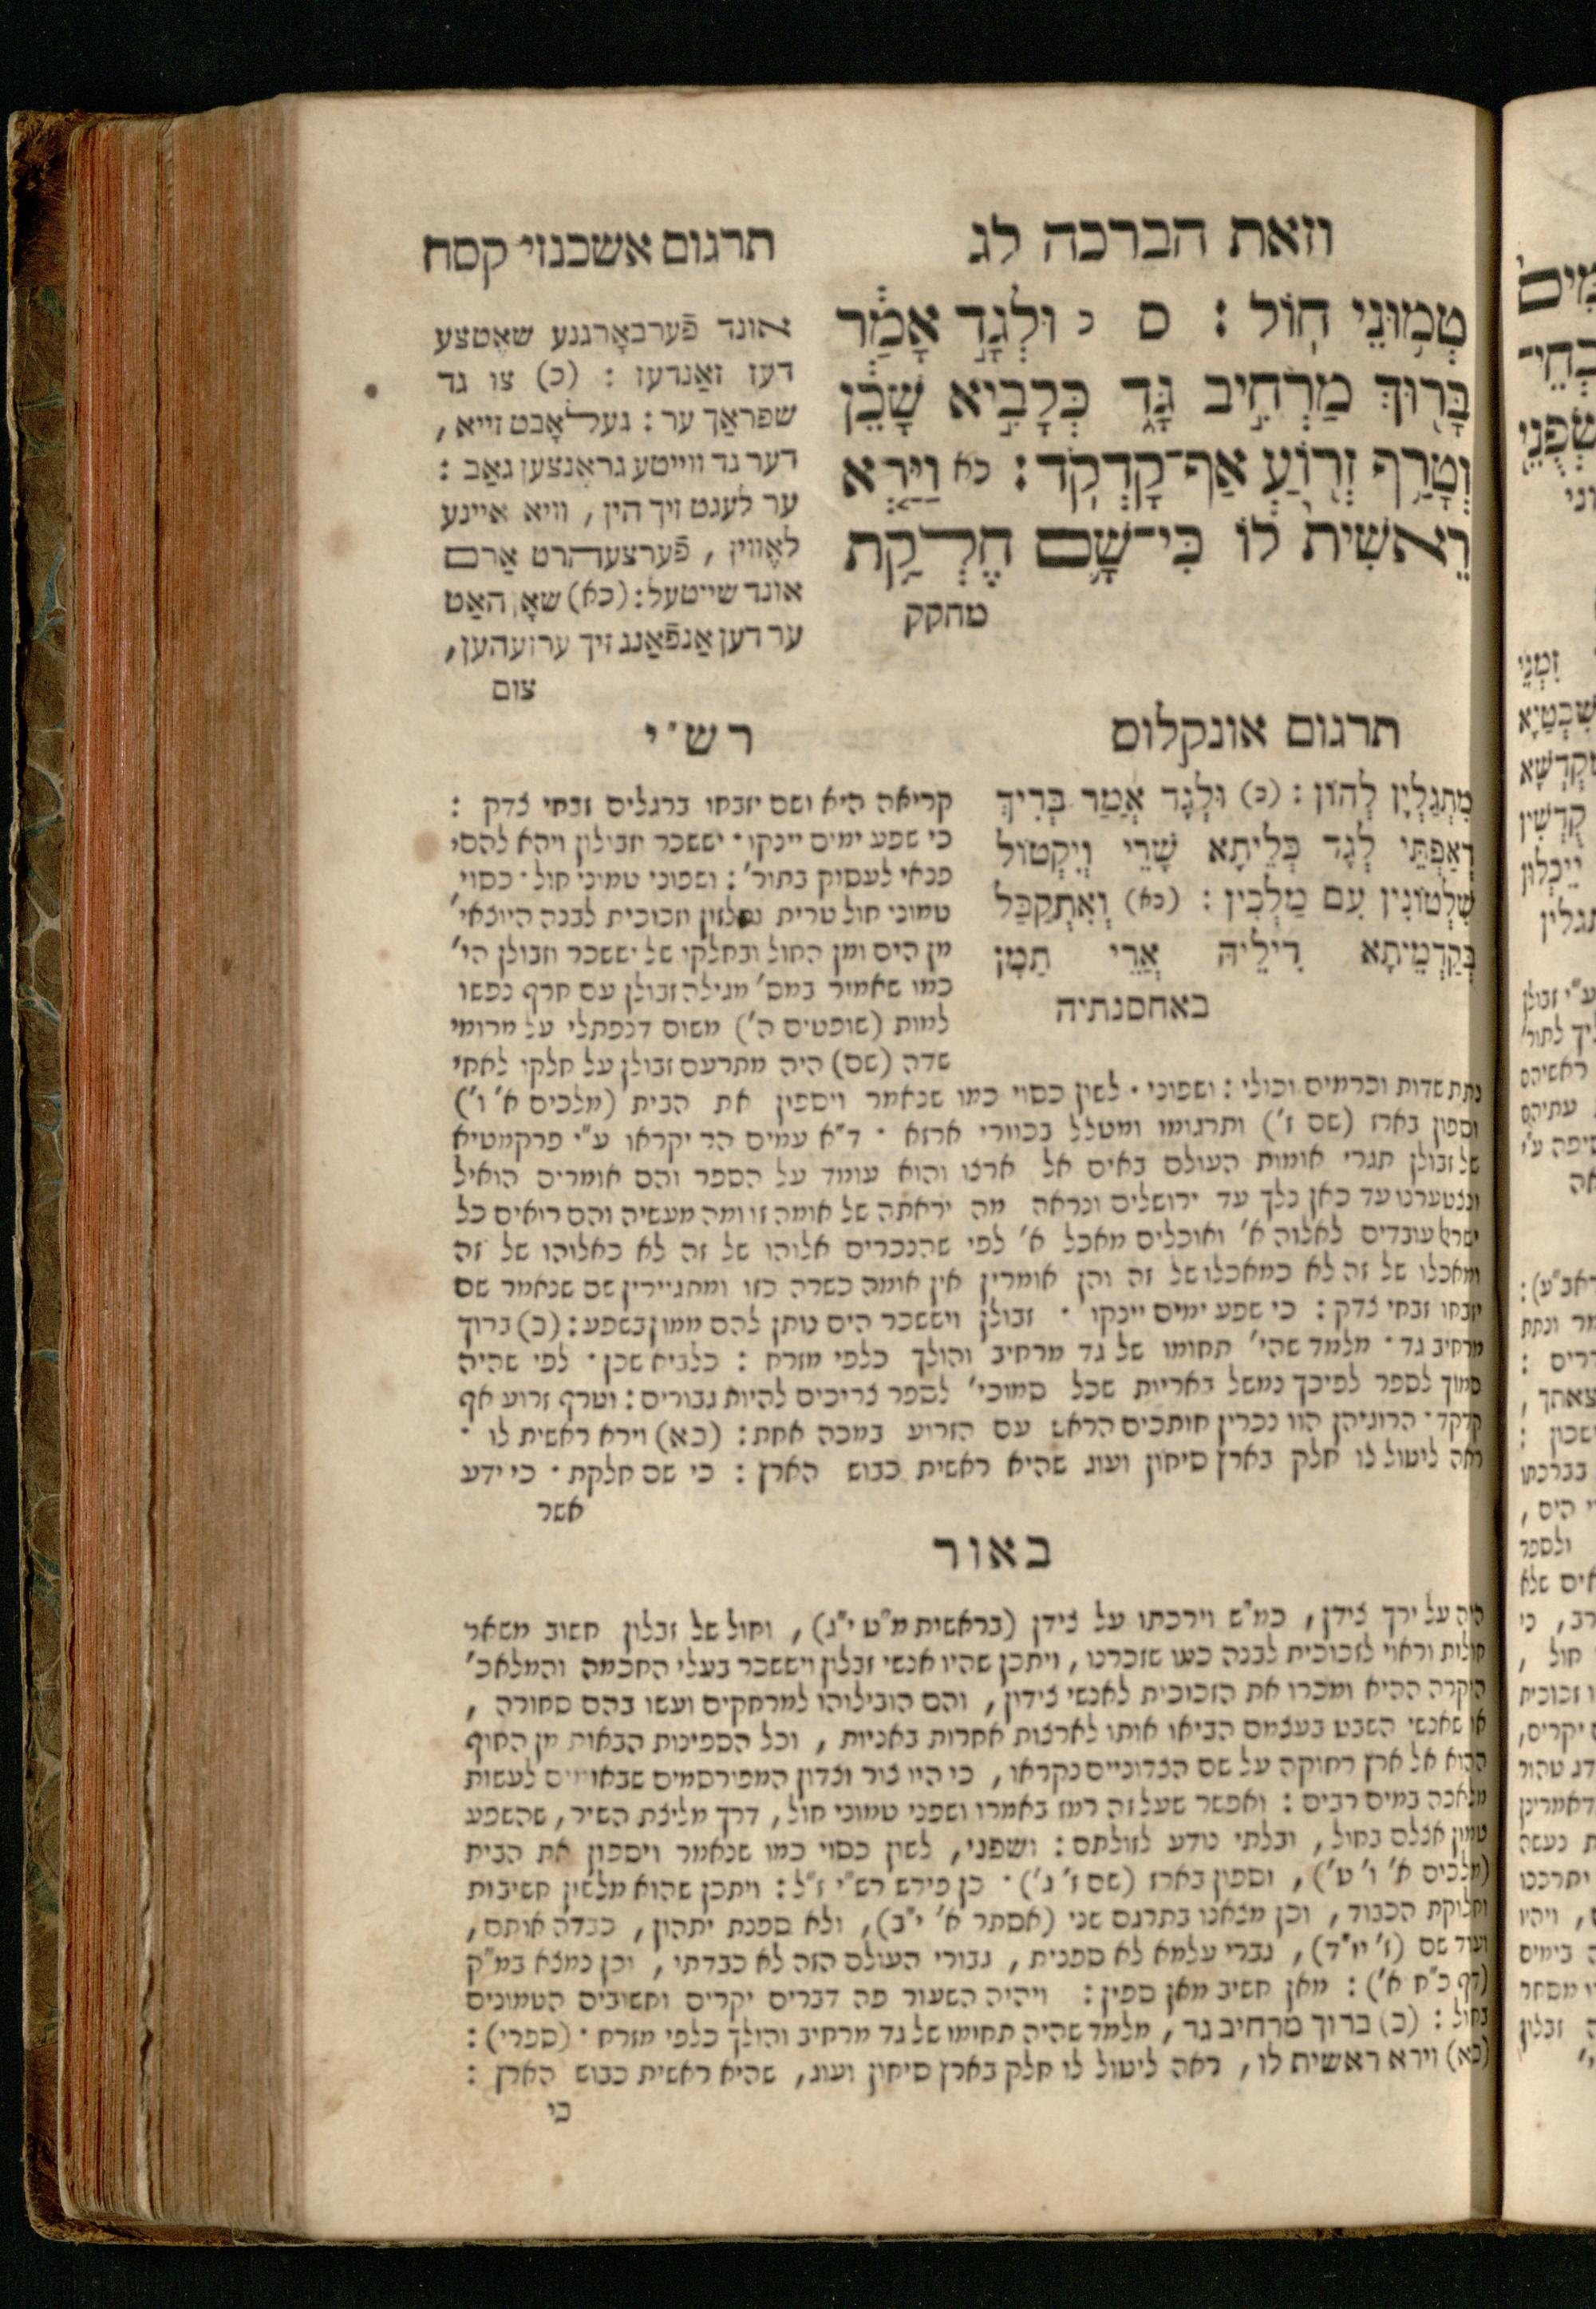 וזאת הברכה לג
טְמ֥וּנֵי חֽוֹל׃ ס כ וּלְגָ֣ד אָמַ֔ר
בָּר֖וּךְ מַרְחִ֣יב גָּ֑ד כְּלָבִ֣יא שָׁכֵ֔ן
וְטָרַ֥ף זְר֖וֹעַ אַף־קָדְקֹֽד׃ כא וַיַּ֤רְא
רֵאשִׁית֙ ל֔וֹ כִּי־שָׁ֛ם חֶלְקַ֥ת
מחקק
תרגום אשכנזי קסח
אונד פֿערבאָרגנע שאֶטצע
דעז זאַנדעז : (כ) צו גד
שפראַך ער : געלאָבט זייא ,
דער גד ווייטע גראֶנצען גאַב :
ער לעגט זיך הין , וויא איינע
לאֶווין , פֿערצעהרט אַרם
אונד שייטעל : (כא) שאָן האַט
ער דען אַנפֿאַנג זיך ערזעהען ,
צום
תרגום אונקלוס
מִתְגַלְיָן לְהוֹן : (כ) וּלְגָד אֲמַר בְּרִיךְ
דְאַפְתֵּי לְגָד כְּלֵיתָא שָׁרֵי וְיִקְטוֹל
שִׁלְטוֹנִין עִם מַלְכִין : (כא) וְאִתְקַבַּל
בְּקַדְמֵיתָא דִילֵיהּ אֲרֵי תַמָּן
באחסנתיה
רש״י
קריאה היא ושם יזבחו ברגלים זבחי צדק :
כי שפע ימים יינקו ׳ יששכר וזבולון ויהא להם׳
פנאי לעסוק בתור׳ : ושפוני טמוני חול ׳ כסויי
טמוני חול טרית וחלזון וזכוכית לבנה היוצאי׳
מן הים ומן החול ובחלקו של יששכר וזבולן הי׳
כמו שאמור במס׳ מגילה זבולן עם חרף נפשו
למות (שופטים ה׳) משום דנפתלי על מרומי
שדה (שם) היה מתרעם זבולן על חלקו לאחי
נתת שדות וכרמים וכולי : ושפוני ׳ לשון כסוי כמו שנאמר ויספון את הבית (מלכים א׳ ו׳)
וספון בארז (שם ז׳) ותרגומו ומטלל בכיורי ארזא ׳ ד״א עמים הר יקראו ע״י פרקמטיא
של זבולן תגרי אומות העולם באים אל ארצו והוא עומד על הספר והם אומרים הואיל
ונצטערנו עד כאן נלך עד ירושלים ונראה מה יראתה של אומה זו ומה מעשיה והם רואים כל
ישראל עובדים לאלוה א׳ ואוכלים מאכל א׳ לפי שהנכרים אלוהו של זה לא כאלוהו של זה
ומאכלו של זה לא כמאכלו של זה והן אומרין אין אומה כשרה כזו ומתגיירין שם שנאמר שם
יזבחו זבחי צדק : כי שפע ימים יינקו ׳ זבולן ויששכר הים נותן להם ממון בשפע : (כ) ברוך
מרחיב גד ׳ מלמד שהי׳ תחומו של גד מרחיב והולך כלפי מזרח : כלביא שכן ׳ לפי שהיה
סמוך לספר לפיכך נמשל באריות שכל סמוכי׳ לספר צריכים להיות גבורים : וטרף זרוע אף
קדקד ׳ הרוגיהן הוו נכרין חותכים הראש עם הזרוע במכה אחת : (כא) וירא ראשית לו ׳
ראה ליטול לו חלק בארץ סיחון ועוג שהיא ראשית כבוש הארץ : כי שם חלקת ׳ כי ידע
אשר
באור
היה על ירך צידן , כמ״ש וירכתו על צידן (בראשית מ״ט י״ג) , וחול של זבלון חשוב משאר
חולות וראוי לזכוכית לבנה כמו שזכרנו , ויתכן שהיו אנשי זבלון ויששכר בעלי החכמה והמלאכ׳
היקרה ההיא ומכרו את הזכוכית לאנשי צידון , והם הובילוהו למרחקים ועשו בהם סחורה ,
או שאנשי השבט בעצמם הביאו אותו לארצות אחרות באניות , וכל הספינות הבאות מן החוף
ההוא אל ארץ רחוקה על שם הצדוניים נקראו , כי היו צור וצדון המפורסמים שבאיים לעשות
מלאכה במים רבים : ואפשר שעל זה רמז באמרו ושפני טמוני חול , דרך מליצת השיר , שהשפע
טמון אצלם בחול , ובלתי נודע לזולתם : ושפני , לשון כסוי כמו שנאמר ויספון את הבית
(מלכים א׳ ו׳ ט׳) , וספון בארז (שם ז׳ ג׳) ׳ כן פירש רש״י ז״ל : ויתכן שהוא מלשון חשיבות
וחלוקת הכבוד , וכן מצאנו בתרגם שני (אסתר א׳ י״ב) , ולא ספנת יתהון , כבדה אותם ,
ועוד שם (ז׳ יו״ד) , גברי עלמא לא ספנית , גבורי העולם הזה לא כבדתי , וכן נמצא במ״ק
(דף כ״ח א׳) : מאן חשיב מאן ספין : ויהיה השעור פה דברים יקרים וחשובים הטמונים
בחול : (כ) ברוך מרחיב גד , מלמד שהיה תחומו של גד מרחיב והולך כלפי מזרח ׳ (ספרי) :
(כא) וירא ראשית לו , ראה ליטול לו חלק בארץ סיחון ועוג , שהיא ראשית כבוש הארץ :
כי